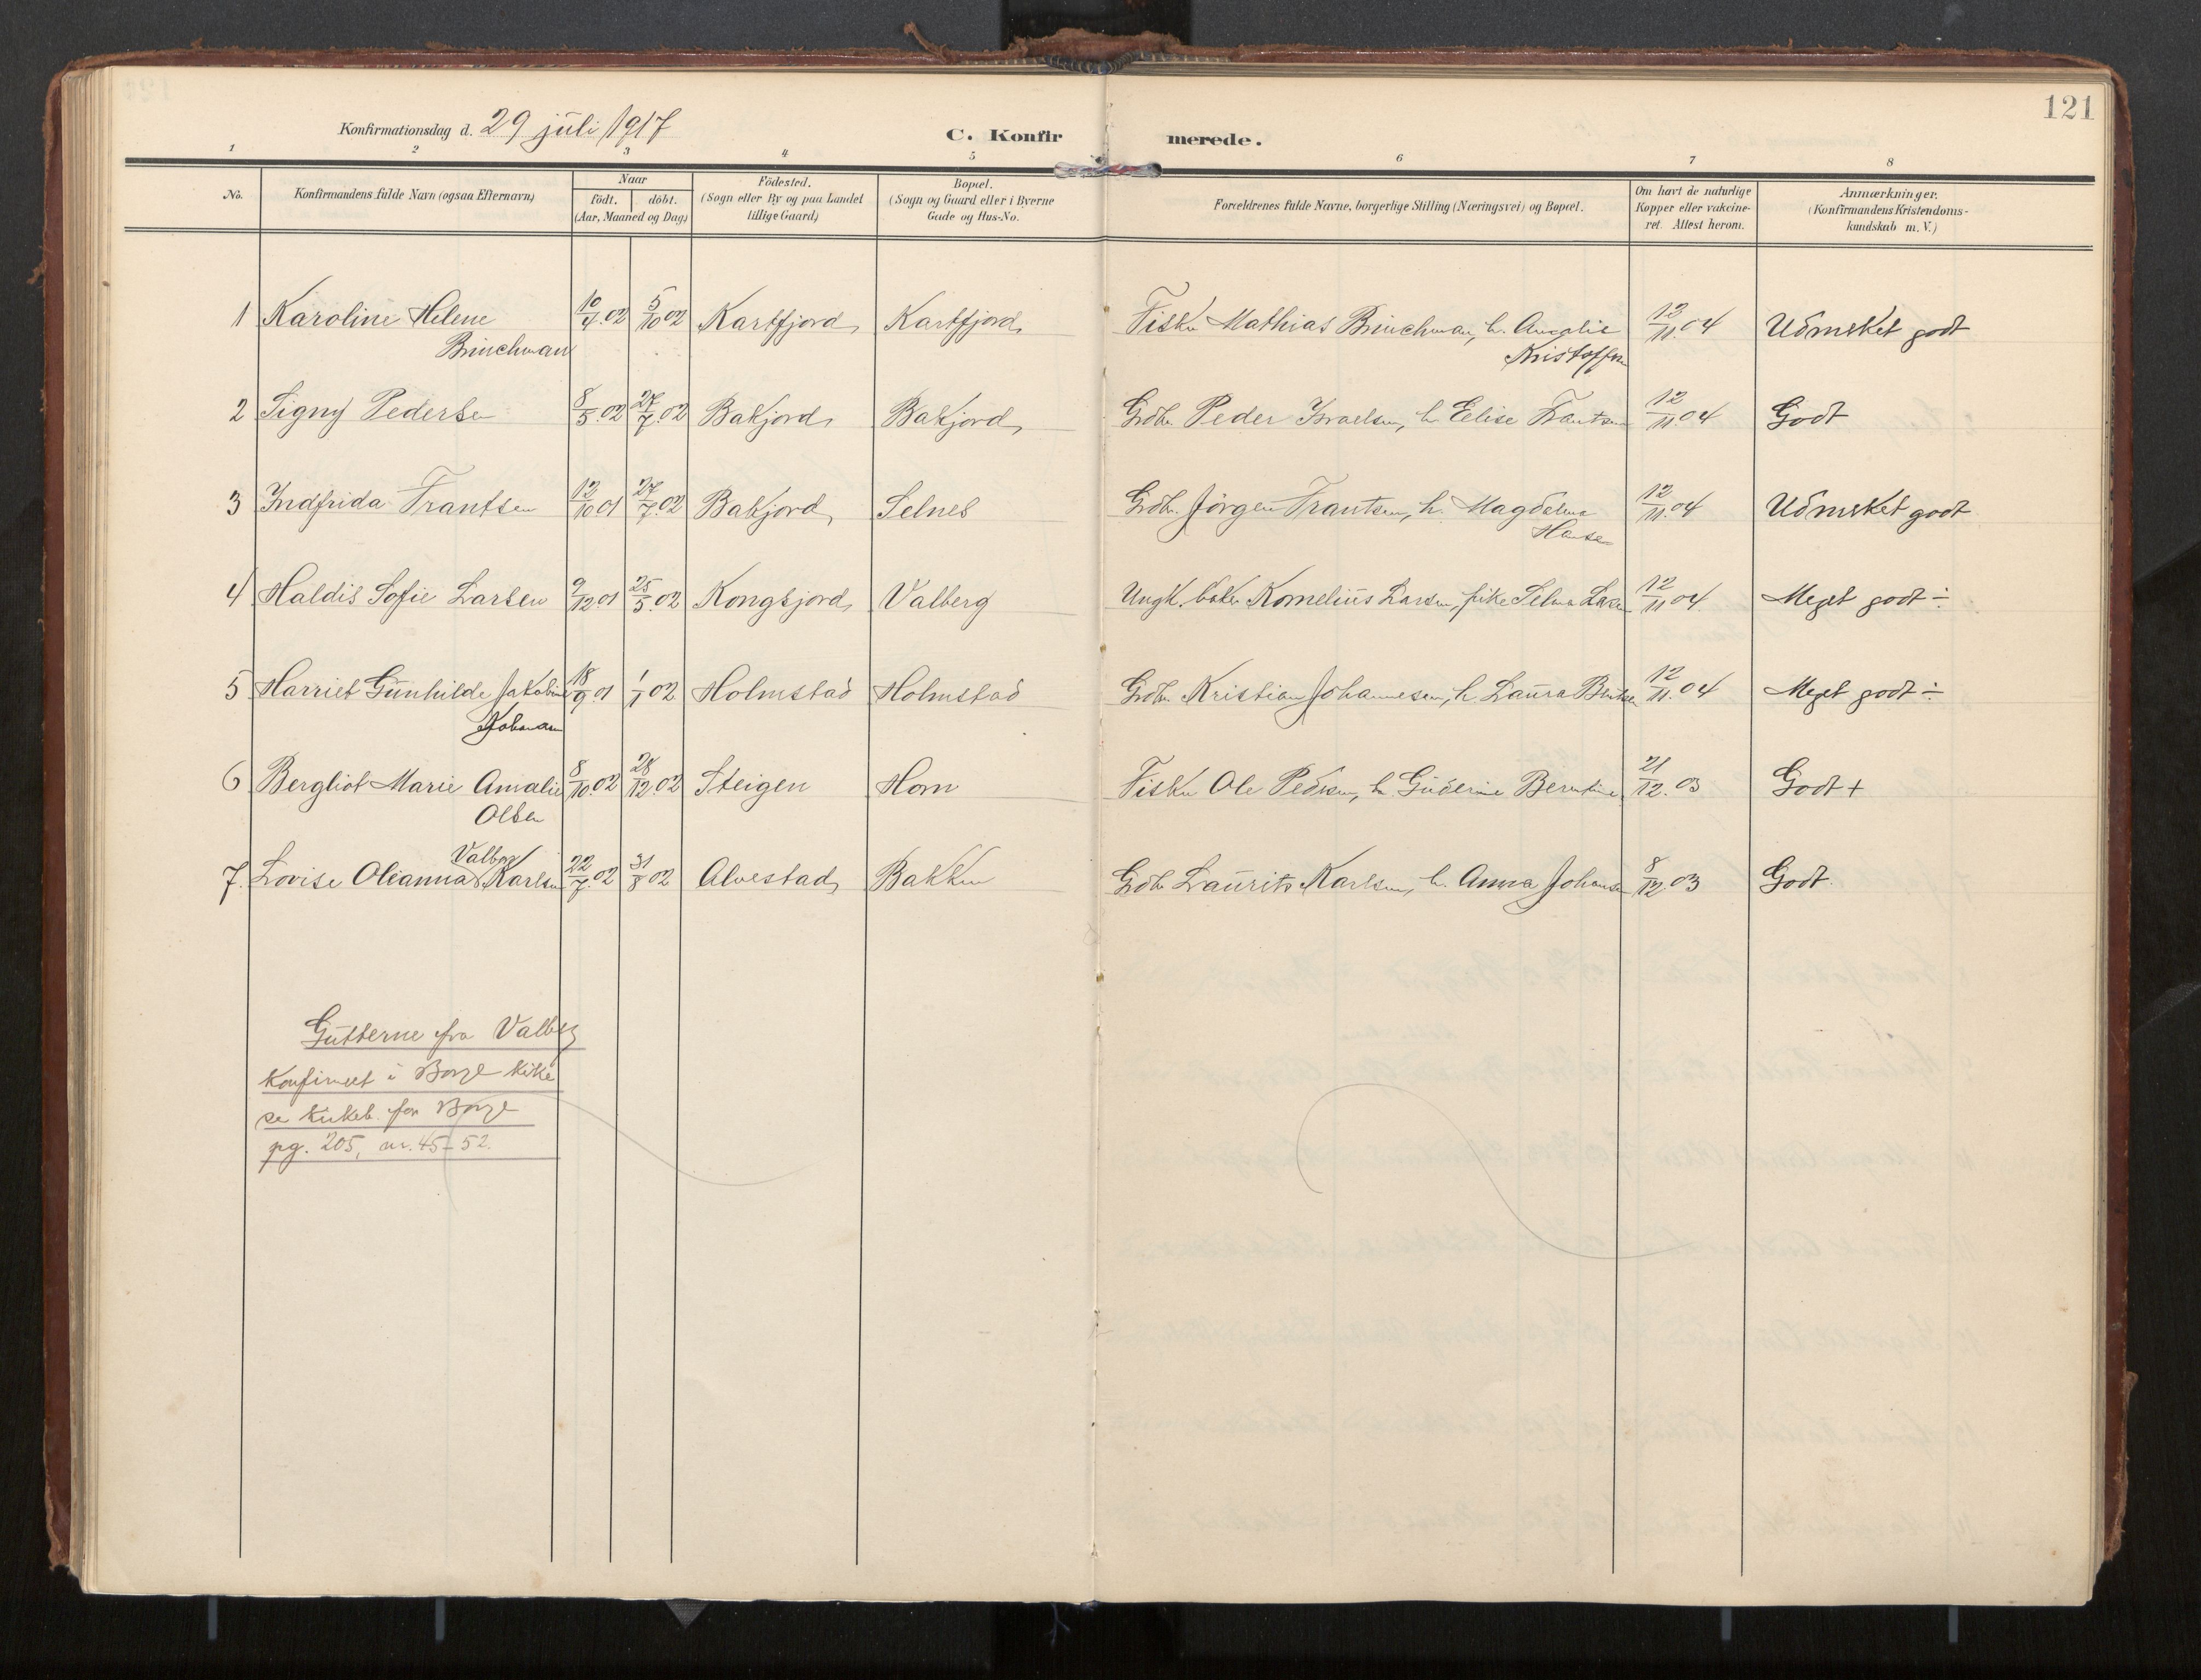 121
Konfirmationsdag d. 29 juli 1917
C. Konfirmerede.
1 2 3 4 5 6 7 8
No.
Konfirmandens fulde Navn (ogsaa Efternavn)
Naar
födt. döbt.
(Aar, Maaned og Dag)
Födested.
(Sogn eller By og paa Landet
tillige Gaard)
Bopæl.
(Sogn og Gaard eller i Byerne
Gade og Hus-No.
Forældrenes fulde Navne, borgerlige Stilling (Næringsvei) og Bopæl.
Om havt de naturlige
Kopper eller vakcine-
ret. Attest herom.
Anmærkninger.
(Konfirmandens Kristendoms-
kundskab m. V.)
1 Karoline Helene 10/4.02 5/10 02 Kartfjord Kartfjord Fisker Mathias Brinchman, h. Angalie 12/11.04 Udmerket godt
Brinchman Kristoffersen
2 Signy Pedersen 8/5.02 27/7.02 Bakjord Bakjord Grdbr. Peder Israelsen, h. Eelise Frantsen 12/11.04 Godt
3 Indfrida Frantsen 12/10 01 27/7.02 Bakjord Selnes Grdbr. Jörgen Frantsen, h. Magdalena 12/11.04 Udmerket godt
Hansen
4 Haldis Sofie Larsen 9/12 01 25/5.02 Kongsjord Valberg Ungk. baker Kornelius Larsen, pike Selma Larsen 12/11 04 Meget godt ÷
5 Harriet Gunhilde Jakobine 18/9.01 1/1 02 Holmstad Holmstad Grdbr. Kristian Johannesen, h. Laura Bentsen 12/11.04 Meget godt ÷
Johansen
6 Bergliot Marie Amalie 8/10.02 28/12.02 Steigen Horn Fisker Ole Pedersen, h. Guderine Berntine 21/12.03 Godt +
Olsen
Valborg
7. Lovise Oleanna Karlsen 22/7.02 31/8 02 Alvestad Bakken Grdbr Laurits Karlsen, h. Anna Johansen 8/12.03 Godt.
Gutterne fra Valberg
konfirmert i Borge kirke
se kirkeb. for Borge
pg. 205, nr. 45-52.